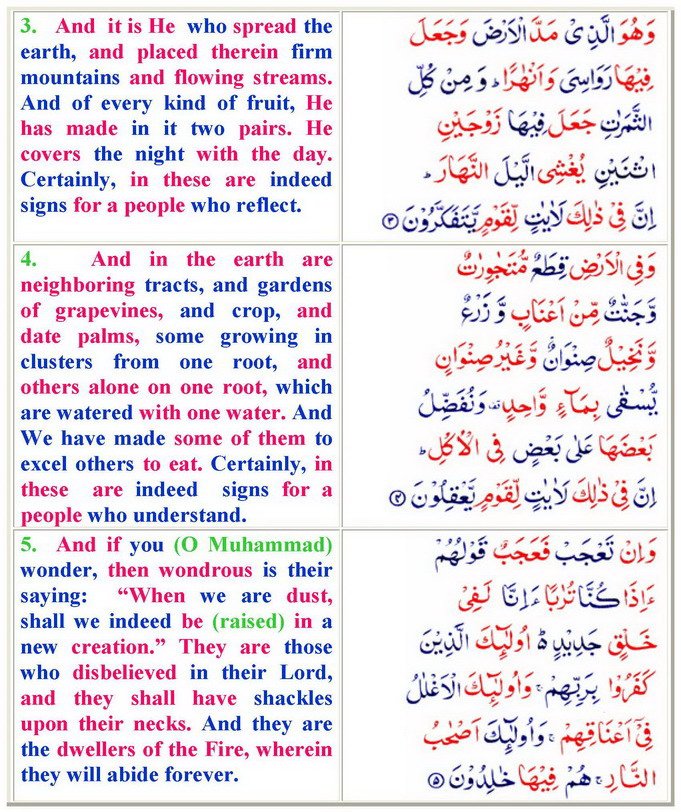 3. And it is He who spread the
earth, and placed therein firm
mountains and flowing streams.
And of every kind of fruit, He
has made in it two pairs. He
covers the night with the day.
Certainly, in these are indeed
signs for a people who reflect.
وَهُوَ الَّذِىْ مَدَّ الْاَرْضَ وَجَعَلَ
فِيْهَا رَوَاسِىَ وَاَنْهٰرًا ؕ وَمِنْ كُلِّ
الثَّمَرٰتِ جَعَلَ فِيْهَا زَوْجَيْنِ
اثْنَيْنِ يُغْشِى الَّيْلَ النَّهَارَ ؕ
اِنَّ فِىْ ذٰلِكَ لَاٰيٰتٍ لِّقَوْمٍ يَّتَفَكَّرُوْنَ ﴿۳﴾
4. And in the earth are
neighboring tracts, and gardens
of grapevines, and crop, and
date palms, some growing in
clusters from one root, and
others alone on one root, which
are watered with one water. And
We have made some of them to
excel others to eat. Certainly, in
these are indeed signs for a
people who understand.
وَفِى الْاَرْضِ قِطَعٌ مُّتَجٰوِرٰتٌ
وَّجَنّٰتٌ مِّنْ اَعْنَابٍ وَّ زَرْعٌ
وَّنَخِيْلٌ صِنْوَانٌ وَّغَيْرُ صِنْوَانٍ
يُّسْقٰى بِمَآءٍ وَّاحِدٍ وَنُفَضِّلُ
بَعْضَهَا عَلٰى بَعْضٍ فِى الْاُكُلِ ؕ
اِنَّ فِىْ ذٰلِكَ لَاٰيٰتٍ لِّقَوْمٍ يَّعْقِلُوْنَ ﴿۴﴾
5. And if you (O Muhammad)
wonder, then wondrous is their
saying: “When we are dust,
shall we indeed be (raised) in a
new creation.” They are those
who disbelieved in their Lord,
and they shall have shackles
upon their necks. And they are
the dwellers of the Fire, wherein
they will abide forever.
وَاِنْ تَعْجَبْ فَعَجَبٌ قَوْلُهُمْ
ءَاِذَا كُنَّا تُرٰبًا ءَاِنَّا لَفِىْ
خَلْقٍ جَدِيْدٍ ؕ اُولٰٓئِكَ الَّذِيْنَ
كَفَرُوْا بِرَبِّهِمْ ۚ وَاُولٰٓئِكَ الْاَغْلٰلُ
فِىْۤ اَعْنَاقِهِمْ ۚ وَاُولٰٓئِكَ اَصْحٰبُ
النَّارِ ۚ هُمْ فِيْهَا خٰلِدُوْنَ ﴿۵﴾